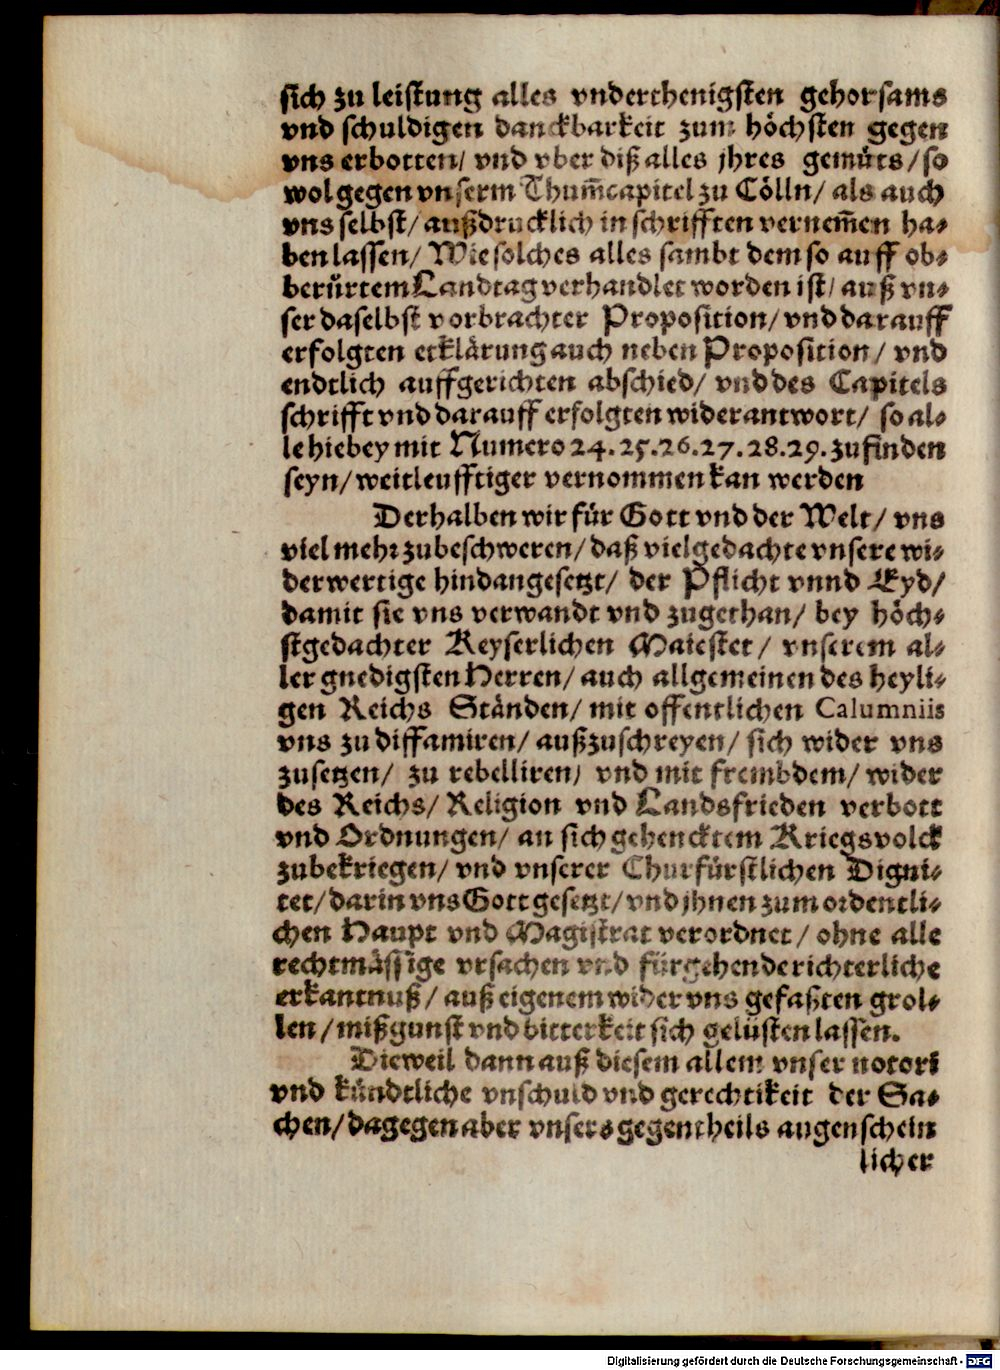 sich zu leistung alles vnderthenigsten gehorsams
vnd schuldigen danckbarkeit zum höchsten gegen
vns erbotten/ vnd vber diß alles jhres gemüts/ so
wol gegen vnserm Thum̃capitel zu Cölln/ als auch
vns selbst/ außdrucklich in schrifften vernem̃en ha-
ben lassen/ Wie solches alles sambt dem so auff ob-
berürtem Landtag verhandlet worden ist/ auß vn-
ser daselbst vorbrachter Proposition/ vnd darauff
erfolgten erklärung auch neben Proposition/ vnd
endtlich auffgerichten abschied/ vnd des Capitels
schrifft vnd darauff erfolgten widerantwort/ so al-
le hiebey mit Numero 24. 25. 26. 27. 28. 29. zufinden
seyn/ weitleufftiger vernommen kan werden
Derhalben wir für Gott vnd der Welt/ vns
viel mehr zubeschweren/ daß vielgedachte vnsere wi-
derwertige hindangesetzt/ der Pflicht vnnd Eyd/
damit sie vns verwandt vnd zugethan/ bey höch-
stgedachter Keyserlichen Maiestet/ vnserem al-
ler gnedigsten Herren/ auch allgemeinen des heyli-
gen Reichs Ständen/ mit offentlichen Calumniis
vns zu diffamiren/ außzuschreyen/ sich wider vns
zusetzen/ zu rebelliren/ vnd mit frembdem/ wider
des Reichs/ Religion vnd Landsfrieden verbott
vnd Ordnungen/ an sich gehencktem Kriegsvolck
zubekriegen/ vnd vnserer Churfürstlichen Digni-
tet/ darin vns Gott gesetzt/ vnd jhnen zum ordentli-
chen Haupt vnd Magistrat verordnet/ ohne alle
rechtmässige vrsachen vnd fürgehende richterliche
erkantnuß/ auß eigenem wider vns gefaßten grol-
len/ mißgunst vnd bitterkeit sich gelüsten lassen.
Dieweil dann auß diesem allem vnser notori
vnd kündtliche vnschuld vnd gerechtikeit der Sa-
chen/ dagegen aber vnsers gegentheils augenschein
licher
Digitalisierung gefördert durch die Deutsche Forschungsgemeinschaft - DFG